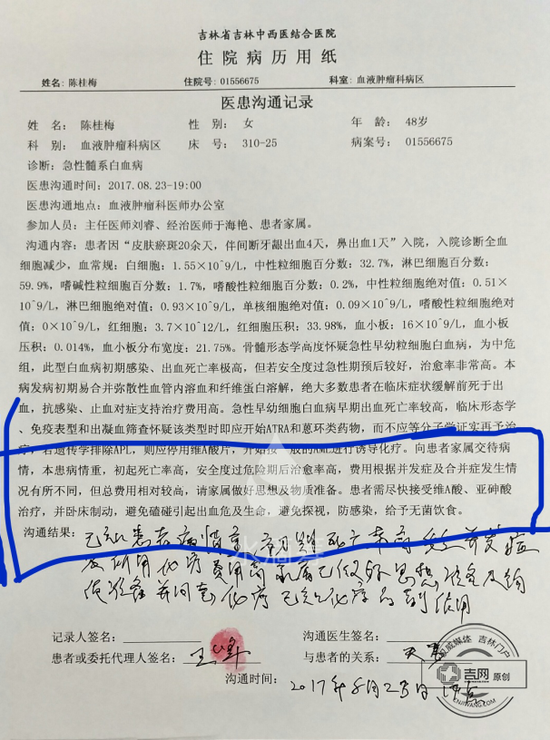 吉林省吉林中西医结合医院
住院病历用纸
姓名：陈桂梅 住院号：01556675 科室：血液肿瘤科病区
医患沟通记录
姓 名： 陈桂梅 性 别： 女 年 龄： 48岁
科 别： 血液肿瘤科病区 床 号： 310-25 病案号：01556675
诊断：急性髓系白血病
医患沟通时间：2017.08.23-19:00
医患沟通地点：血液肿瘤科医师办公室
参加人员：主任医师刘睿、经治医师于海艳、患者家属。
沟通内容：患者因“皮肤瘀斑20余天，伴间断牙龈出血4天，鼻出血1天”入院，入院诊断全血
细胞减少，血常规：白细胞：1.55×10^9/L，中性粒细胞百分数：32.7%，淋巴细胞百分数：
59.9%，嗜碱性粒细胞百分数：1.7%，嗜酸性粒细胞百分数：0.2%，中性粒细胞绝对值：0.51×
10^9/L，淋巴细胞绝对值：0.93×10^9/L，单核细胞绝对值：0.09×10^9/L，嗜酸性粒细胞绝对
值：0×10^9/L，红细胞：3.7×10^12/L，红细胞压积：33.98%，血小板：16×10^9/L，血小板
压积：0.014%，血小板分布宽度：21.75%。骨髓形态学高度怀疑急性早幼粒细胞白血病，为中危
组，此型白血病初期感染、出血死亡率极高，但若安全度过急性期预后较好，治愈率非常高。本
病发病初期易合并弥散性血管内溶血和纤维蛋白溶解，绝大多数患者在临床症状缓解前死于出
血，抗感染、止血对症支持治疗费用高。急性早幼细胞白血病早期出血死亡率较高，临床形态学
、免疫表型和出凝血筛查怀疑该类型时即应开始ATRA和蒽环类药物，而不应等分子学证实再予治
疗，若遗传学排除APL，则应停用维A酸片，开始按一般的AML进行诱导化疗。向患者家属交待病
情，本患病情重，初起死亡率高，安全度过危险期后治愈率高，费用根据并发症及合并症发生情
况有所不同，但总费用相对较高，请家属做好思想及物质准备。患者需尽快接受维A酸、亚砷酸
治疗，并卧床制动，避免磕碰引起出血危及生命，避免探视，防感染，给予无菌饮食。
沟通结果：已知患者病情重
记录人签名： 沟通医生签名：
患者或委托代理人签名： 与患者的关系：
沟通时间：2017年8月23日
权威媒体 吉林门户
吉网 原创
水滴筹